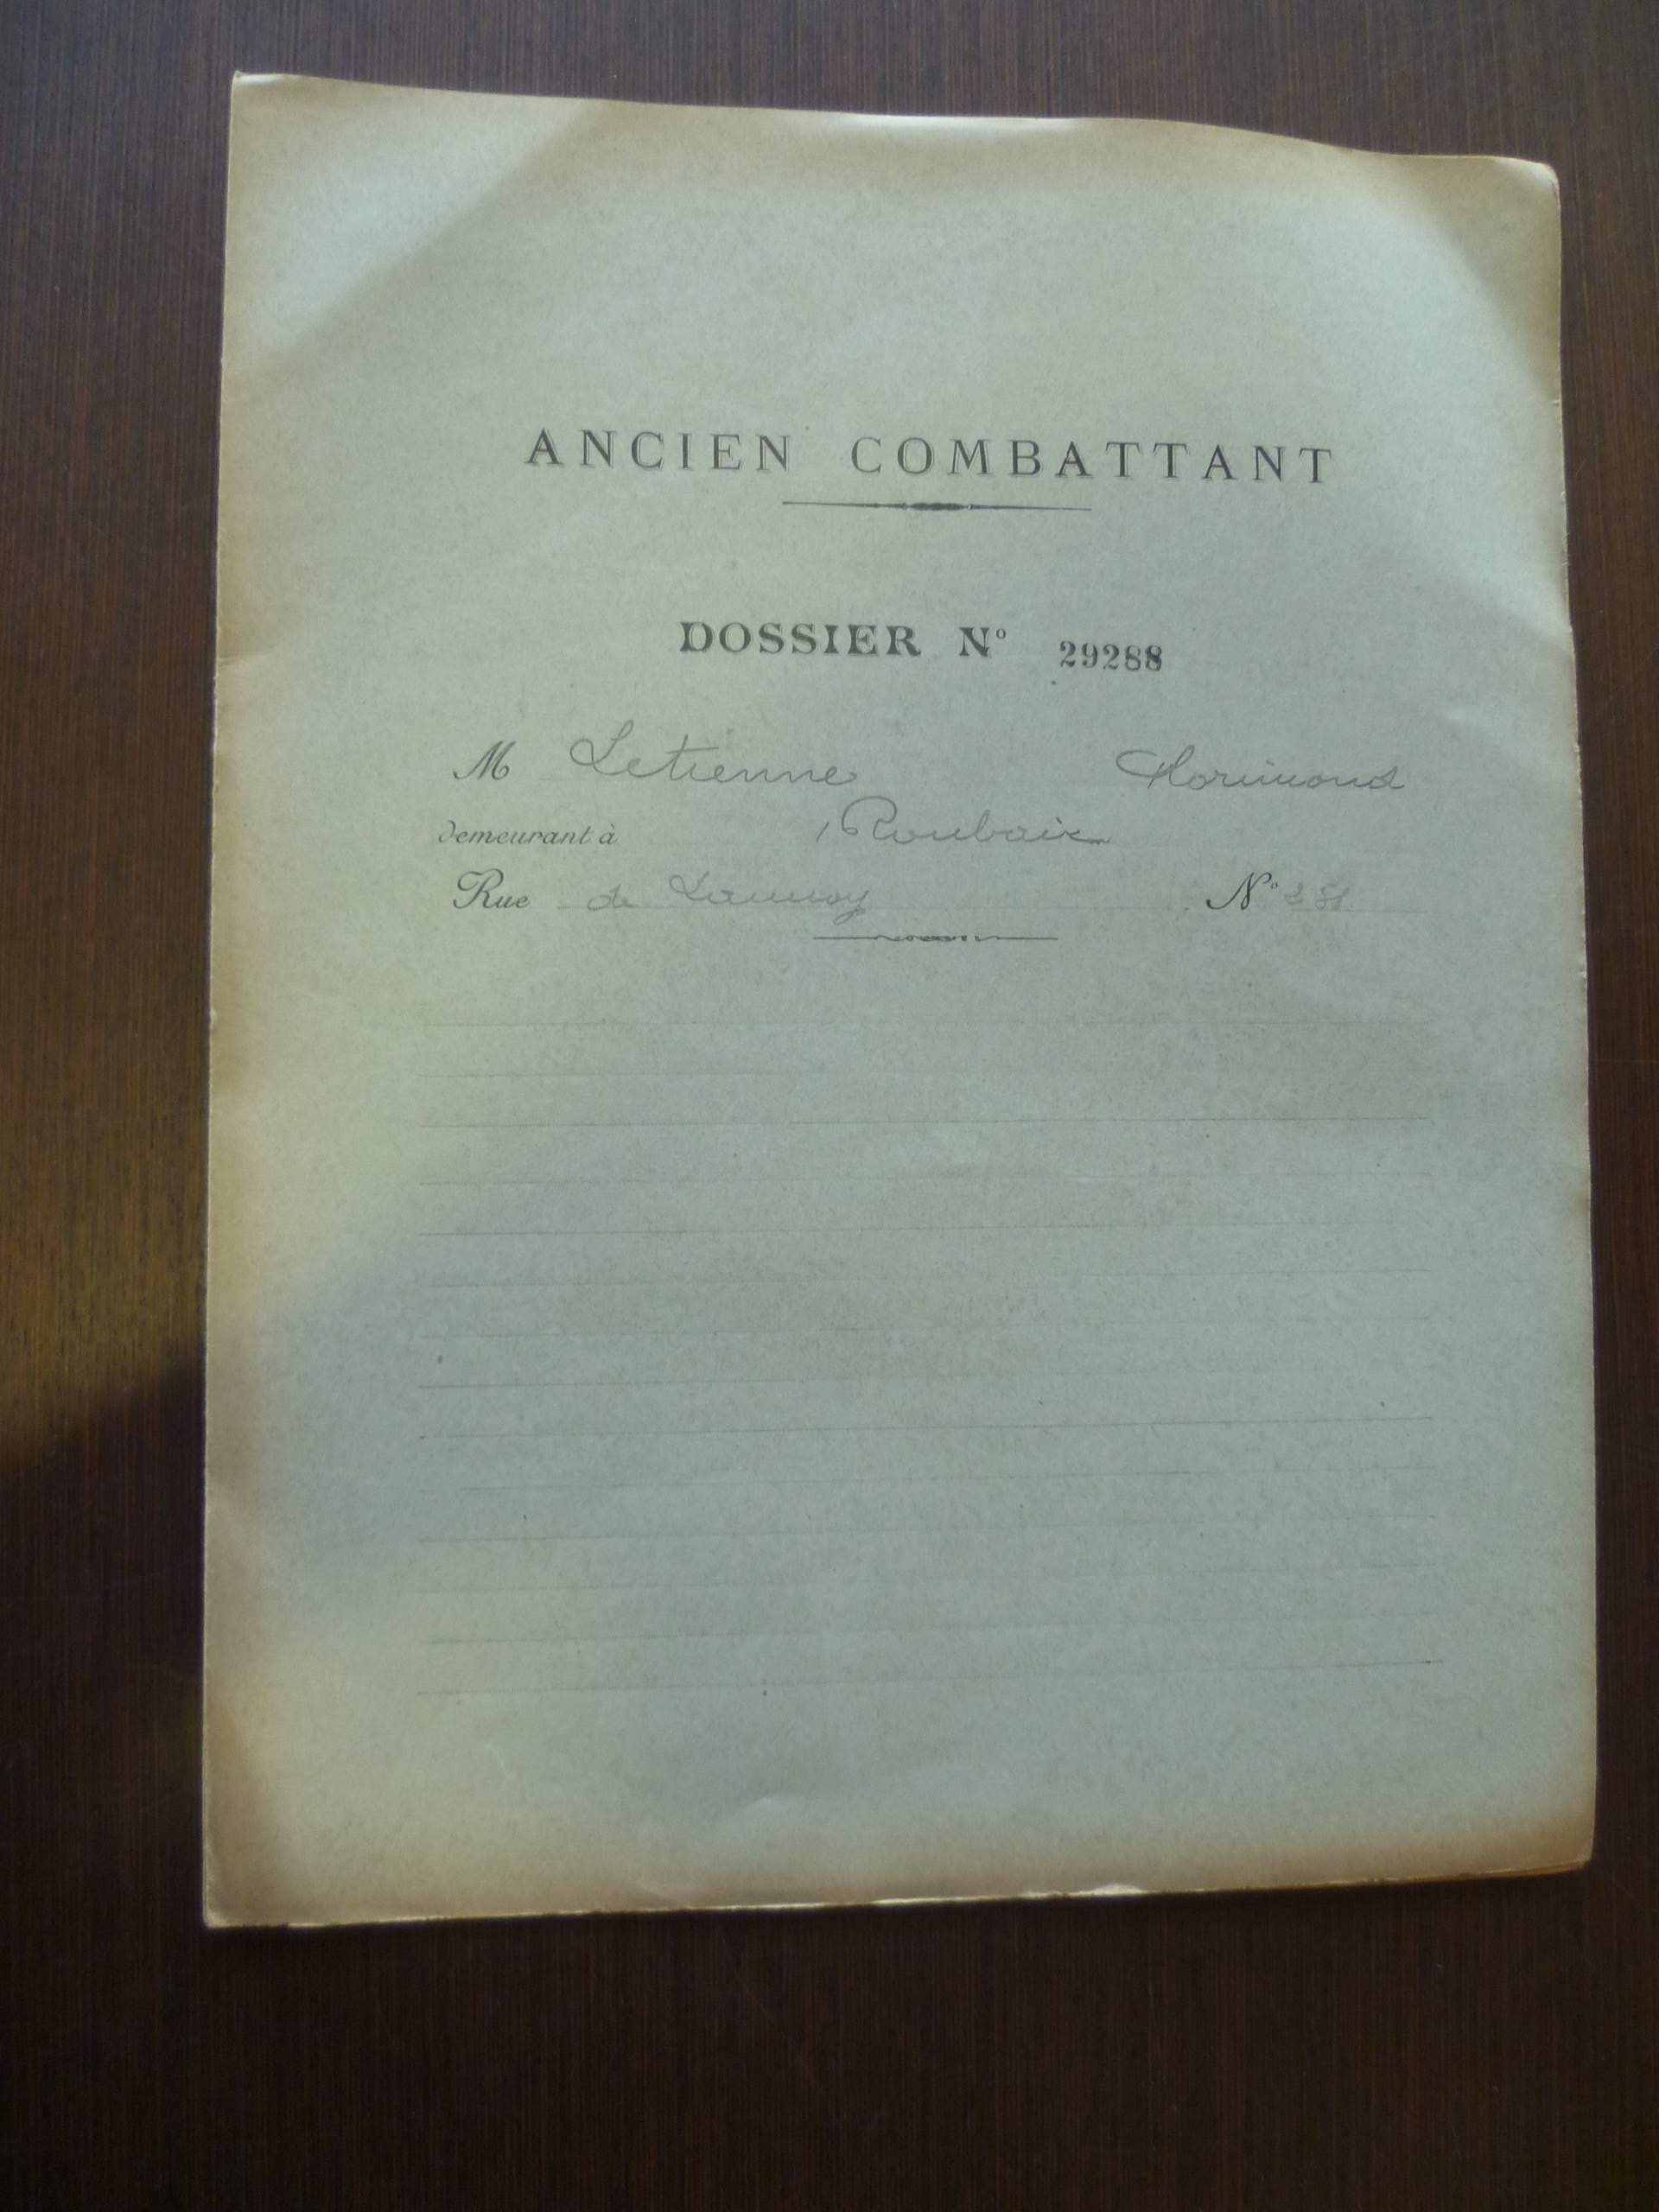 ANCIEN COMBATTANT
DOSSIER Nº 29288
M Letienne Florimond
Demeurant à Roubaix
Rue de Lannoy Nº 281